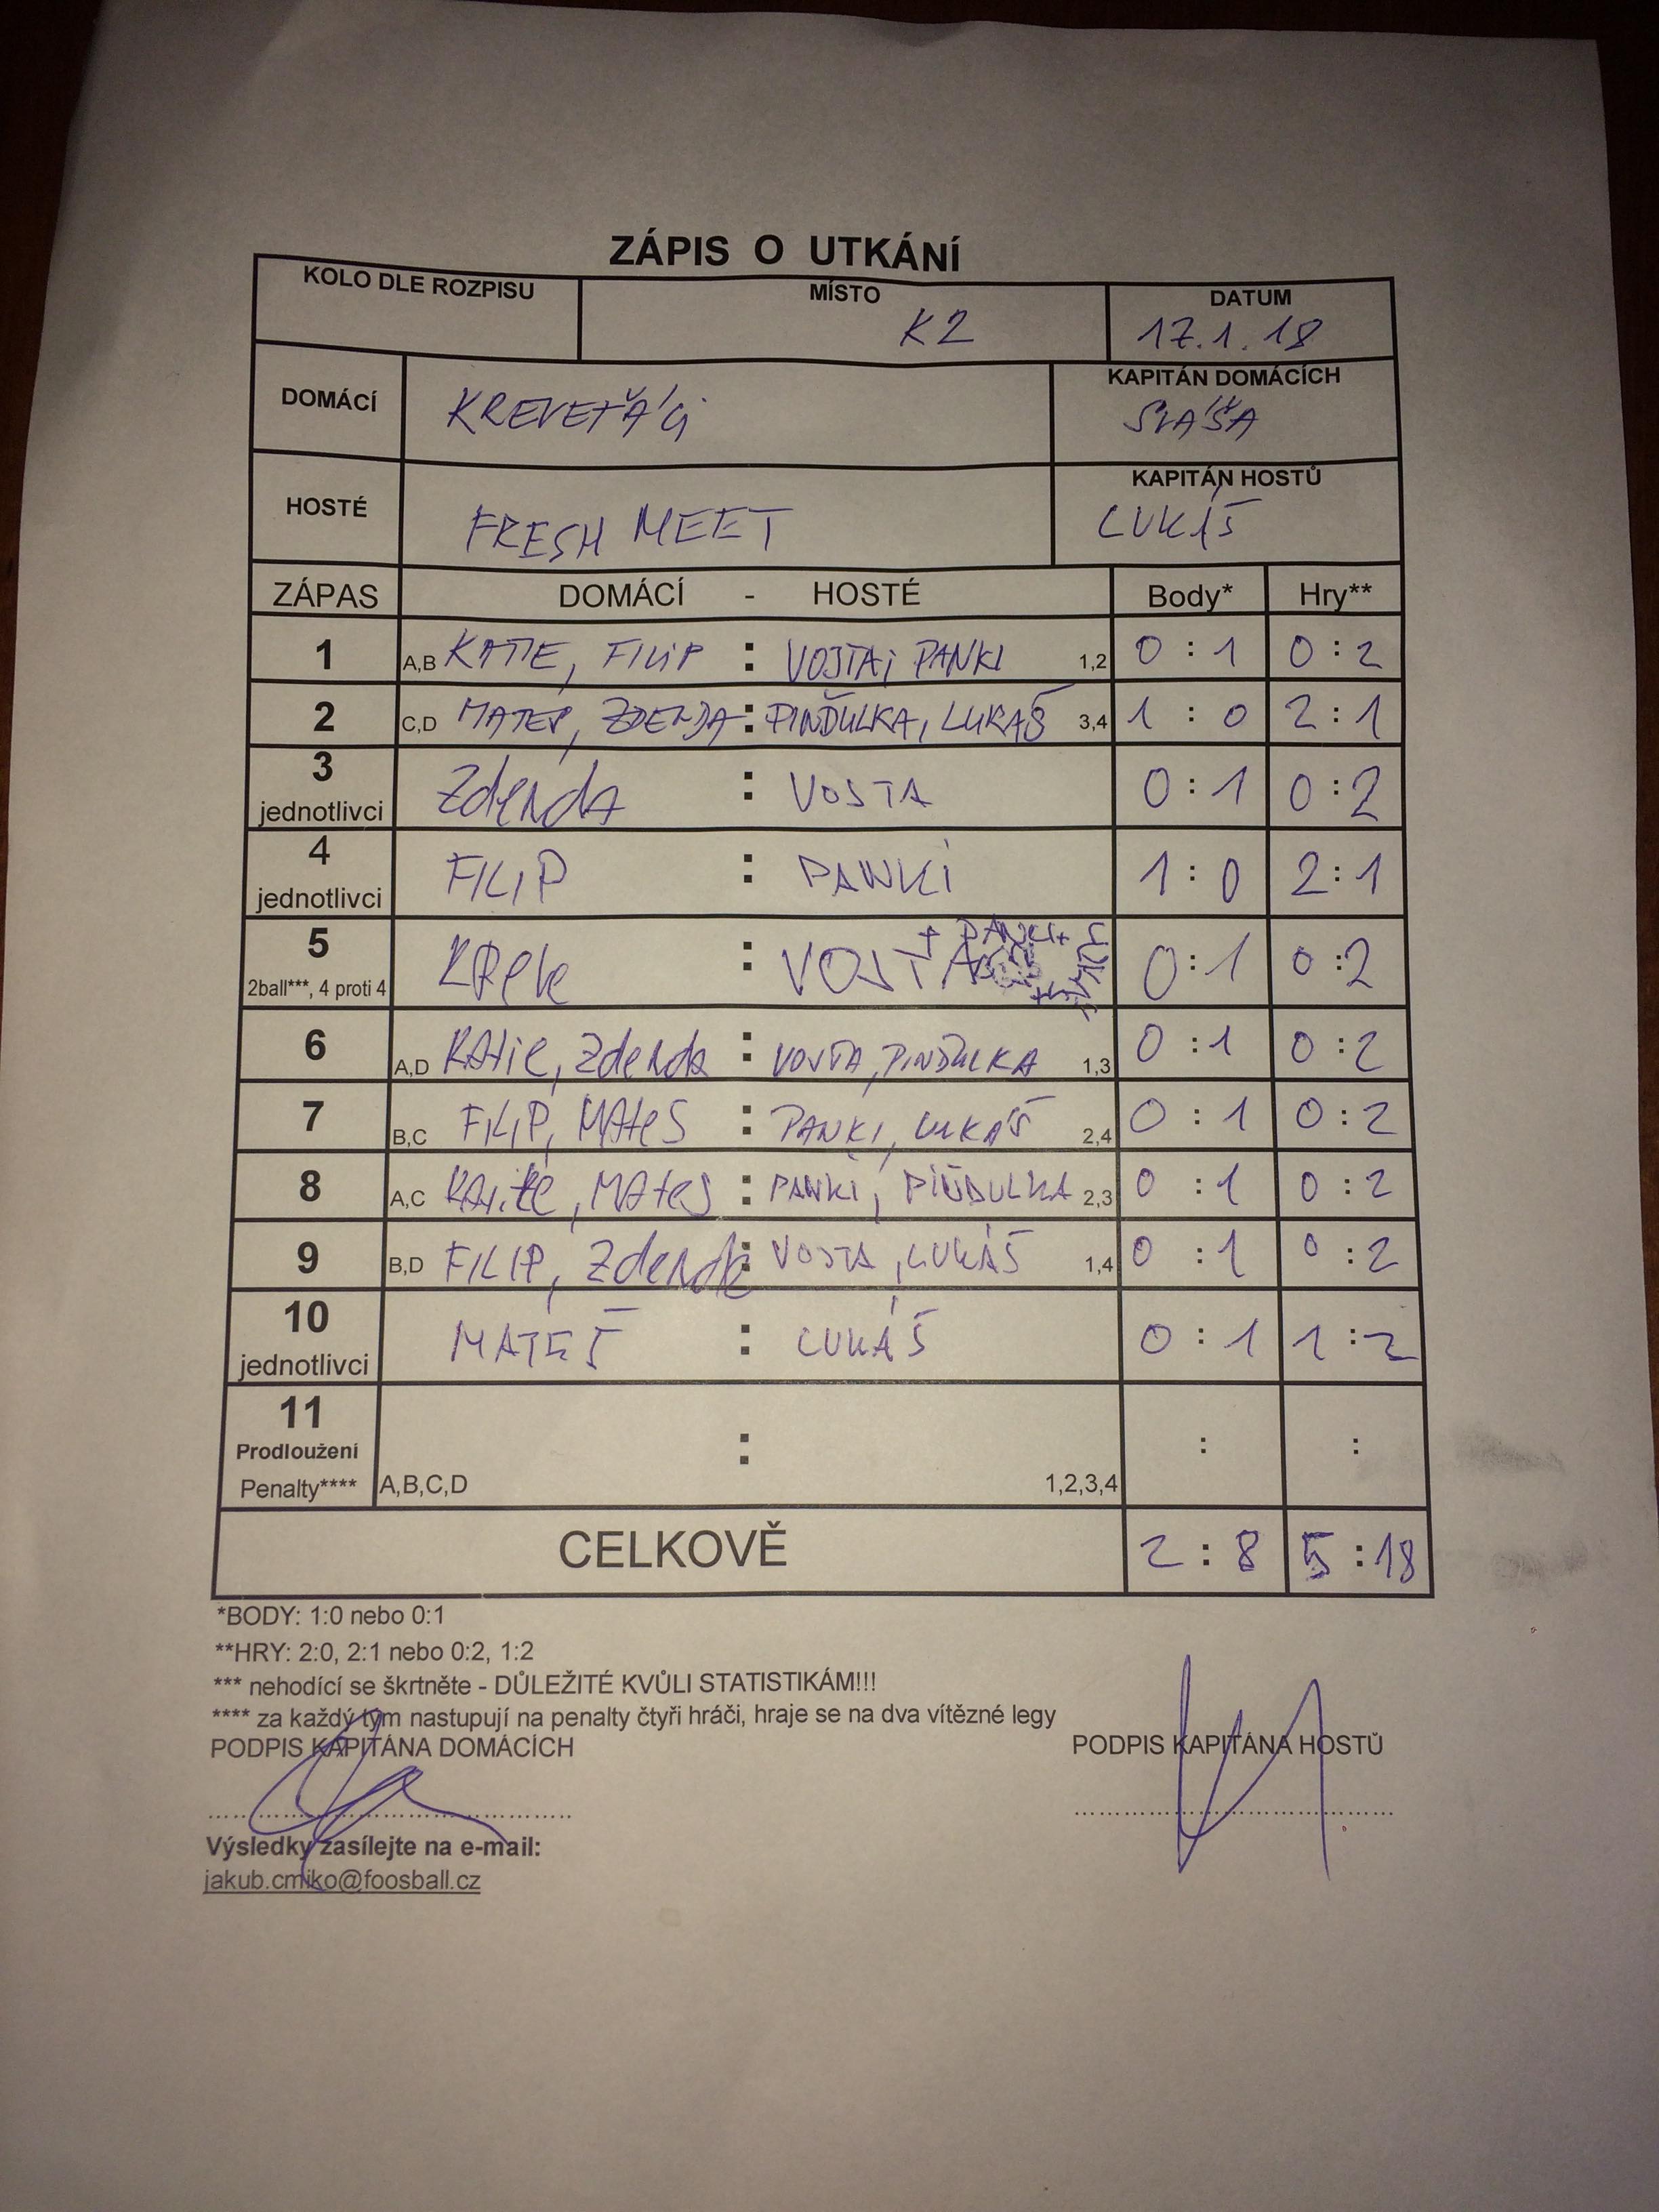 ZÁPIS O UTKÁNÍ
KOLO DLE ROZPISU MÍSTO DATUM
K2 17.1.18
DOMÁCÍ KREVEŤÁCI KAPITÁN DOMÁCÍCH
SLÁŠA
HOSTÉ FRESH MEET KAPITÁN HOSTŮ
LUKÁŠ
ZÁPAS DOMÁCÍ - HOSTÉ Body* Hry**
1 A,B KATIE, FILIP : VOJTA, PANKI 1,2 0 : 1 0 : 2
2 C,D MATEŠ, ZDENDA : PINĎULKA, LUKÁŠ 3,4 1 : 0 2 : 1
3 jednotlivci Zdenda : VOJTA 0 : 1 0 : 2
4 jednotlivci FILIP : PANKI 1 : 0 2 : 1
5 2ball***, 4 proti 4 : VOJTA + PANKI + 0 : 1 0 : 2
6 A,D KATIE, Zdenda : VOJTA, PINĎULKA 1,3 0 : 1 0 : 2
7 B,C FILIP, MATEŠ : PANKI, LUKÁŠ 2,4 0 : 1 0 : 2
8 A,C KATIE, MATEŠ : PANKI, PIŇDULKA 2,3 0 : 1 0 : 2
9 B,D FILIP, Zdenda : VOJTA, LUKÁŠ 1,4 0 : 1 0 : 2
10 jednotlivci MATEŠ : LUKÁŠ 0 : 1 1 : 2
11
Prodloužení : : :
Penalty**** A,B,C,D 1,2,3,4
CELKOVĚ 2 : 8 5 : 18
*BODY: 1:0 nebo 0:1
**HRY: 2:0, 2:1 nebo 0:2, 1:2
*** nehodící se škrtněte - DŮLEŽITÉ KVŮLI STATISTIKÁM!!!
**** za každý tým nastupují na penalty čtyři hráči, hraje se na dva vítězné legy
PODPIS KAPITÁNA DOMÁCÍCH PODPIS KAPITÁNA HOSTŮ
Výsledky zasílejte na e-mail:
jakub.cmiko@foosball.cz